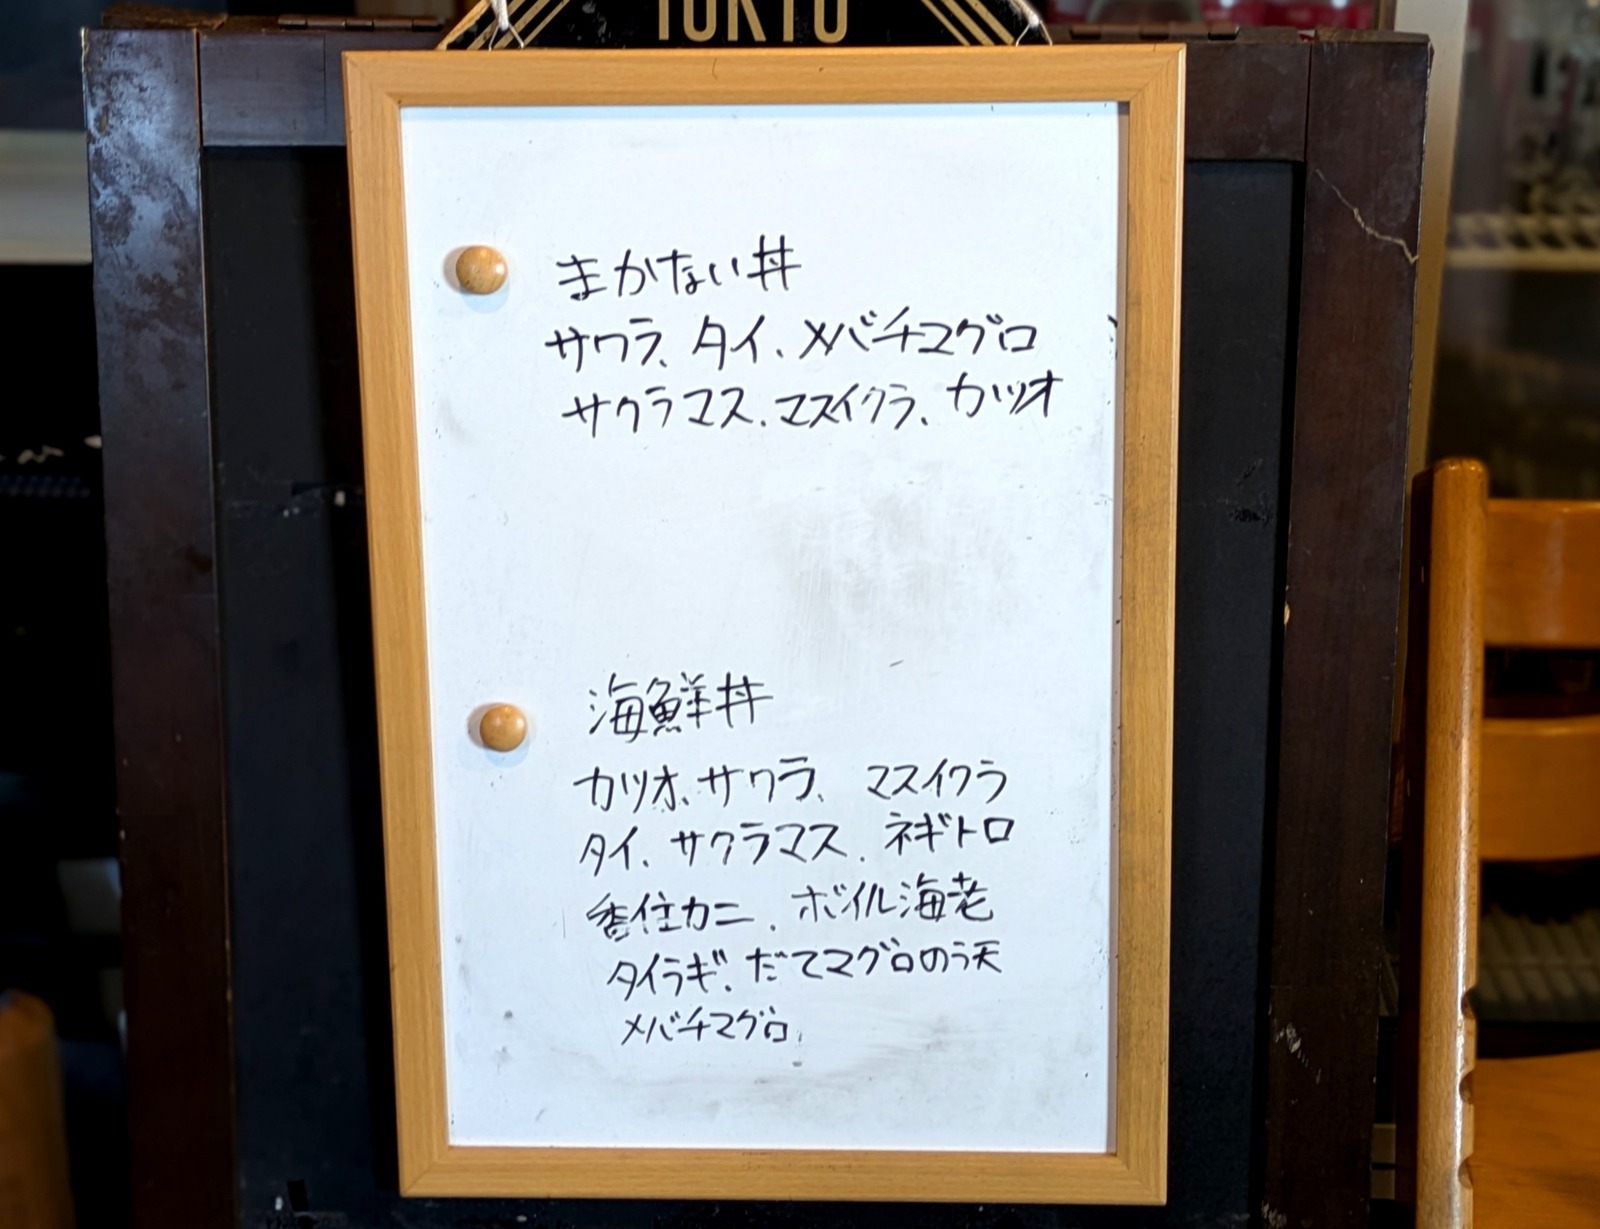 TOKYO
まかない丼
サワラ、タイ、メバチマグロ
サクラマス、マスイクラ、カツオ
海鮮丼
カツオ、サワラ、マスイクラ
タイ、サクラマス、ネギトロ
香住カニ、ボイル海老
タイラギ、だてマグロのう天
メバチマグロ